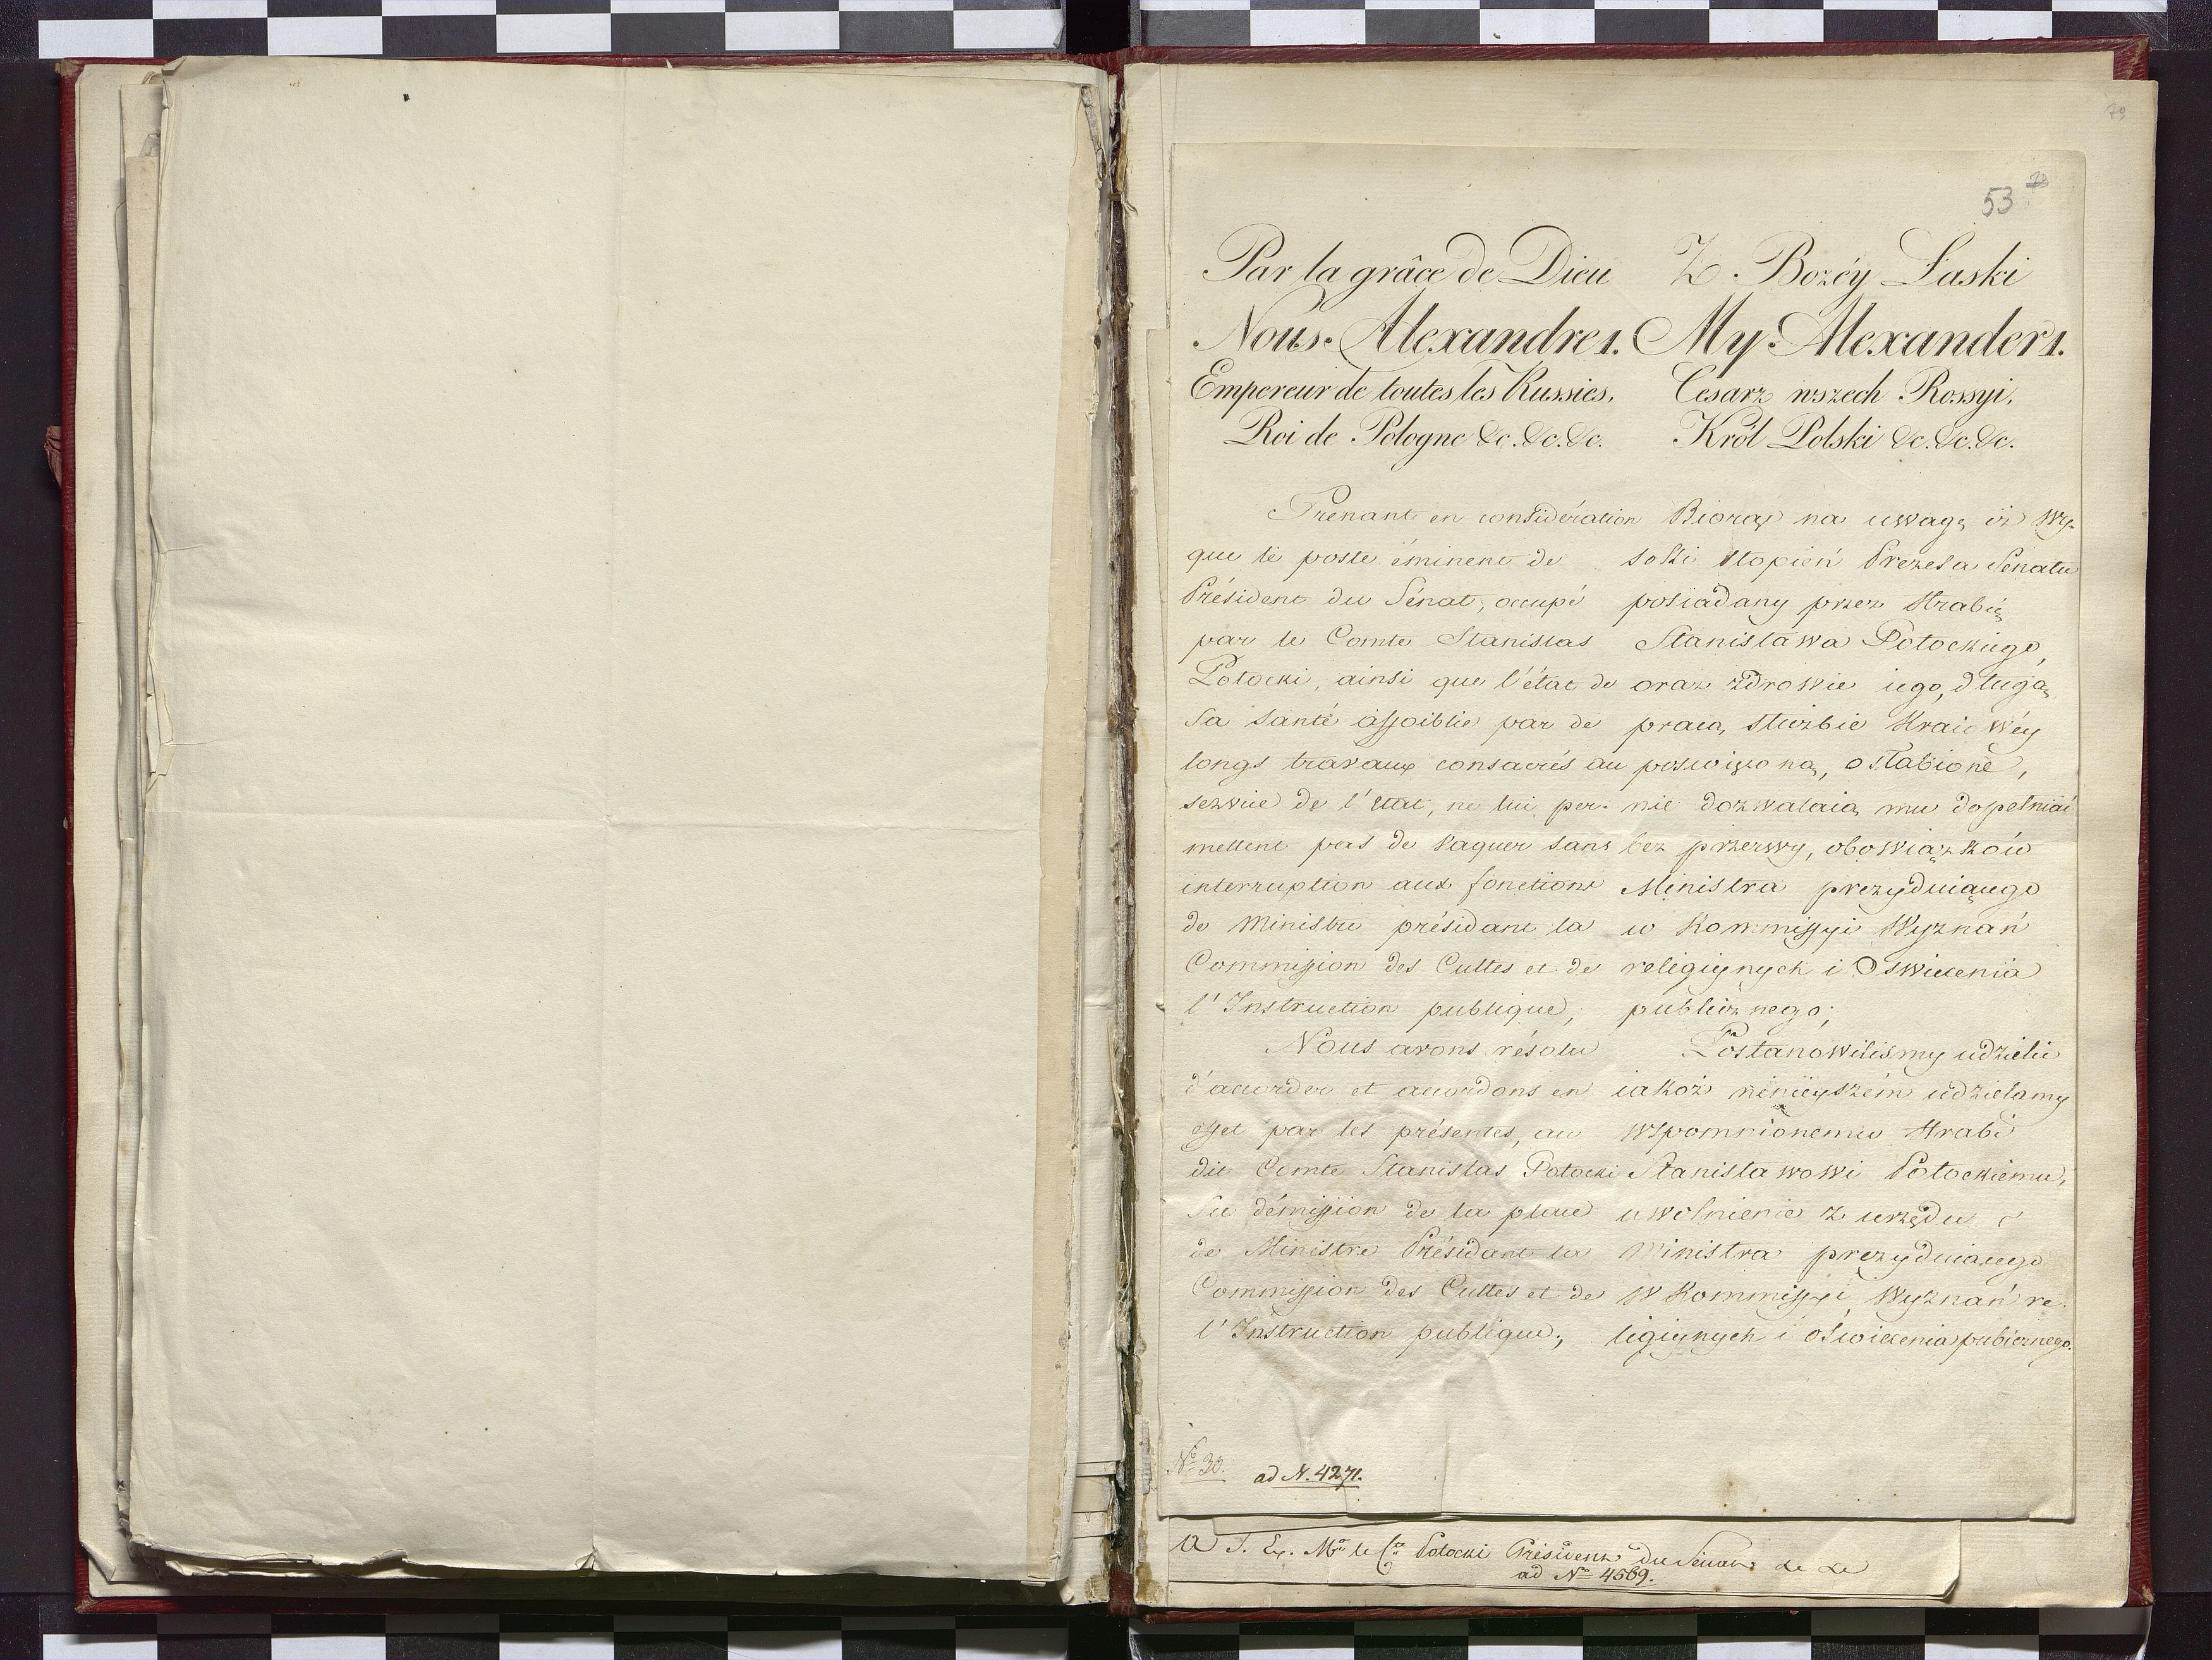 79
53 78
Par la grâce de Dieu
Nous Alexandre 1.
Empereur de toutes les Russies,
Roi de Pologne &c. &c. &c.
Prenant en considération
que le poste éminent de
Président du Sénat, occupé
par le Comte Stanislas
Potocki, ainsi que l'état de
sa santé affoiblie par de
longs travaux consacrés au
service de l'état, ne lui per-
mettent pas de vaquer sans
interruption aux fonctions
de Ministre présidant la
Commission des Cultes et de
l'Instruction publique;
Nous avons résolu
d'accorder et accordons en
effet par les présentes, au
dit Comte Stanislas Potocki
Sa démission de la place
de Ministre Présidant la
Commission des Cultes et de
l'Instruction publique;
Z Bozéy Łaski
My Alexander 1.
Cesarz wszech Rossyi,
Król Polski &c. &c. &c.
Biorąc na uwagę iż wy-
soki stopień Prezesa Senatu
posiadany przez Hrabię
Stanisława Potockiego,
oraz zdrowie iego, długą
pracą służbie kraiowéy
poswięconą, osłabione,
nie dozwalaią mu dopełniać
bez przerwy, obowiązków
Ministra prezyduiącego
w Kommissyi Wyznań
religiynych i Oswiecenia
publicznego;
Postanowilismy udzielić
iakoż ninieyszém udzielamy
wspomnionemu Hrabi
Stanisławowi Potockiemu,
uwolnienie z urzędu
Ministra prezyduiącego
w Kommissyi Wyznań re-
ligiynych i oświecenia publicznego.
No 30.
ad N. 4271.
a S. Ex. Mr le Cte Potocki Président du Sénat &c &c
ad No 4569.